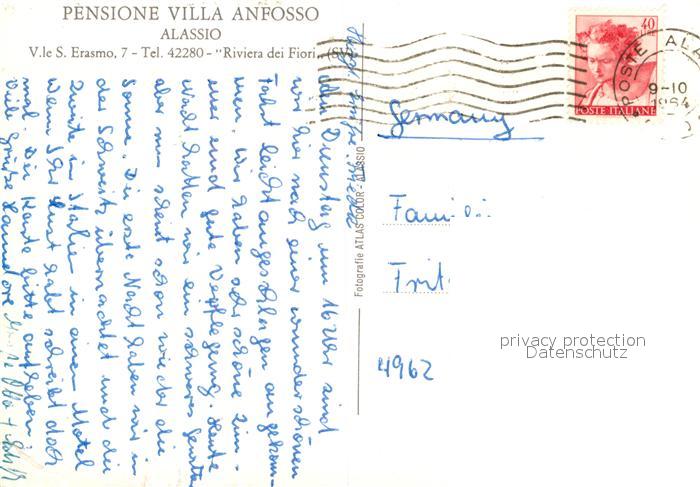 PENSIONE VILLA ANFOSSO
ALASSIO
V.le S. Erasmo, 7 - Tel. 42280 - "Riviera dei Fiori" (SV)
Dienstag um 16 Uhr sind
wir hier nach einer wunderschönen
Fahrt leicht angeschlagen angekom-
men. Wir haben sehr schöne Zim-
mer und gute Verpflegung. Heute
Nacht hatten wir ein schweres Gewitter
aber nun scheint schon wieder die
Sonne. Die erste Nacht haben wir in
der Schweiz übernachtet und die
zweite in Italien in einem Motel
Wenn Ihr Lust habt schreibt doch
mal. Die Karte bitte aufheben.
Viele Grüße Hannelore
Fotografie ATLAS COLOR - ALASSIO
40
LIRE
POSTE ITALIANE
POSTE ALA
9-10
1964
Germany
Fami
Frit
4962
privacy protection
Datenschutz